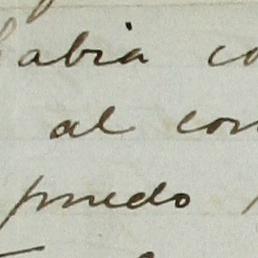 abia co
al con
puedo